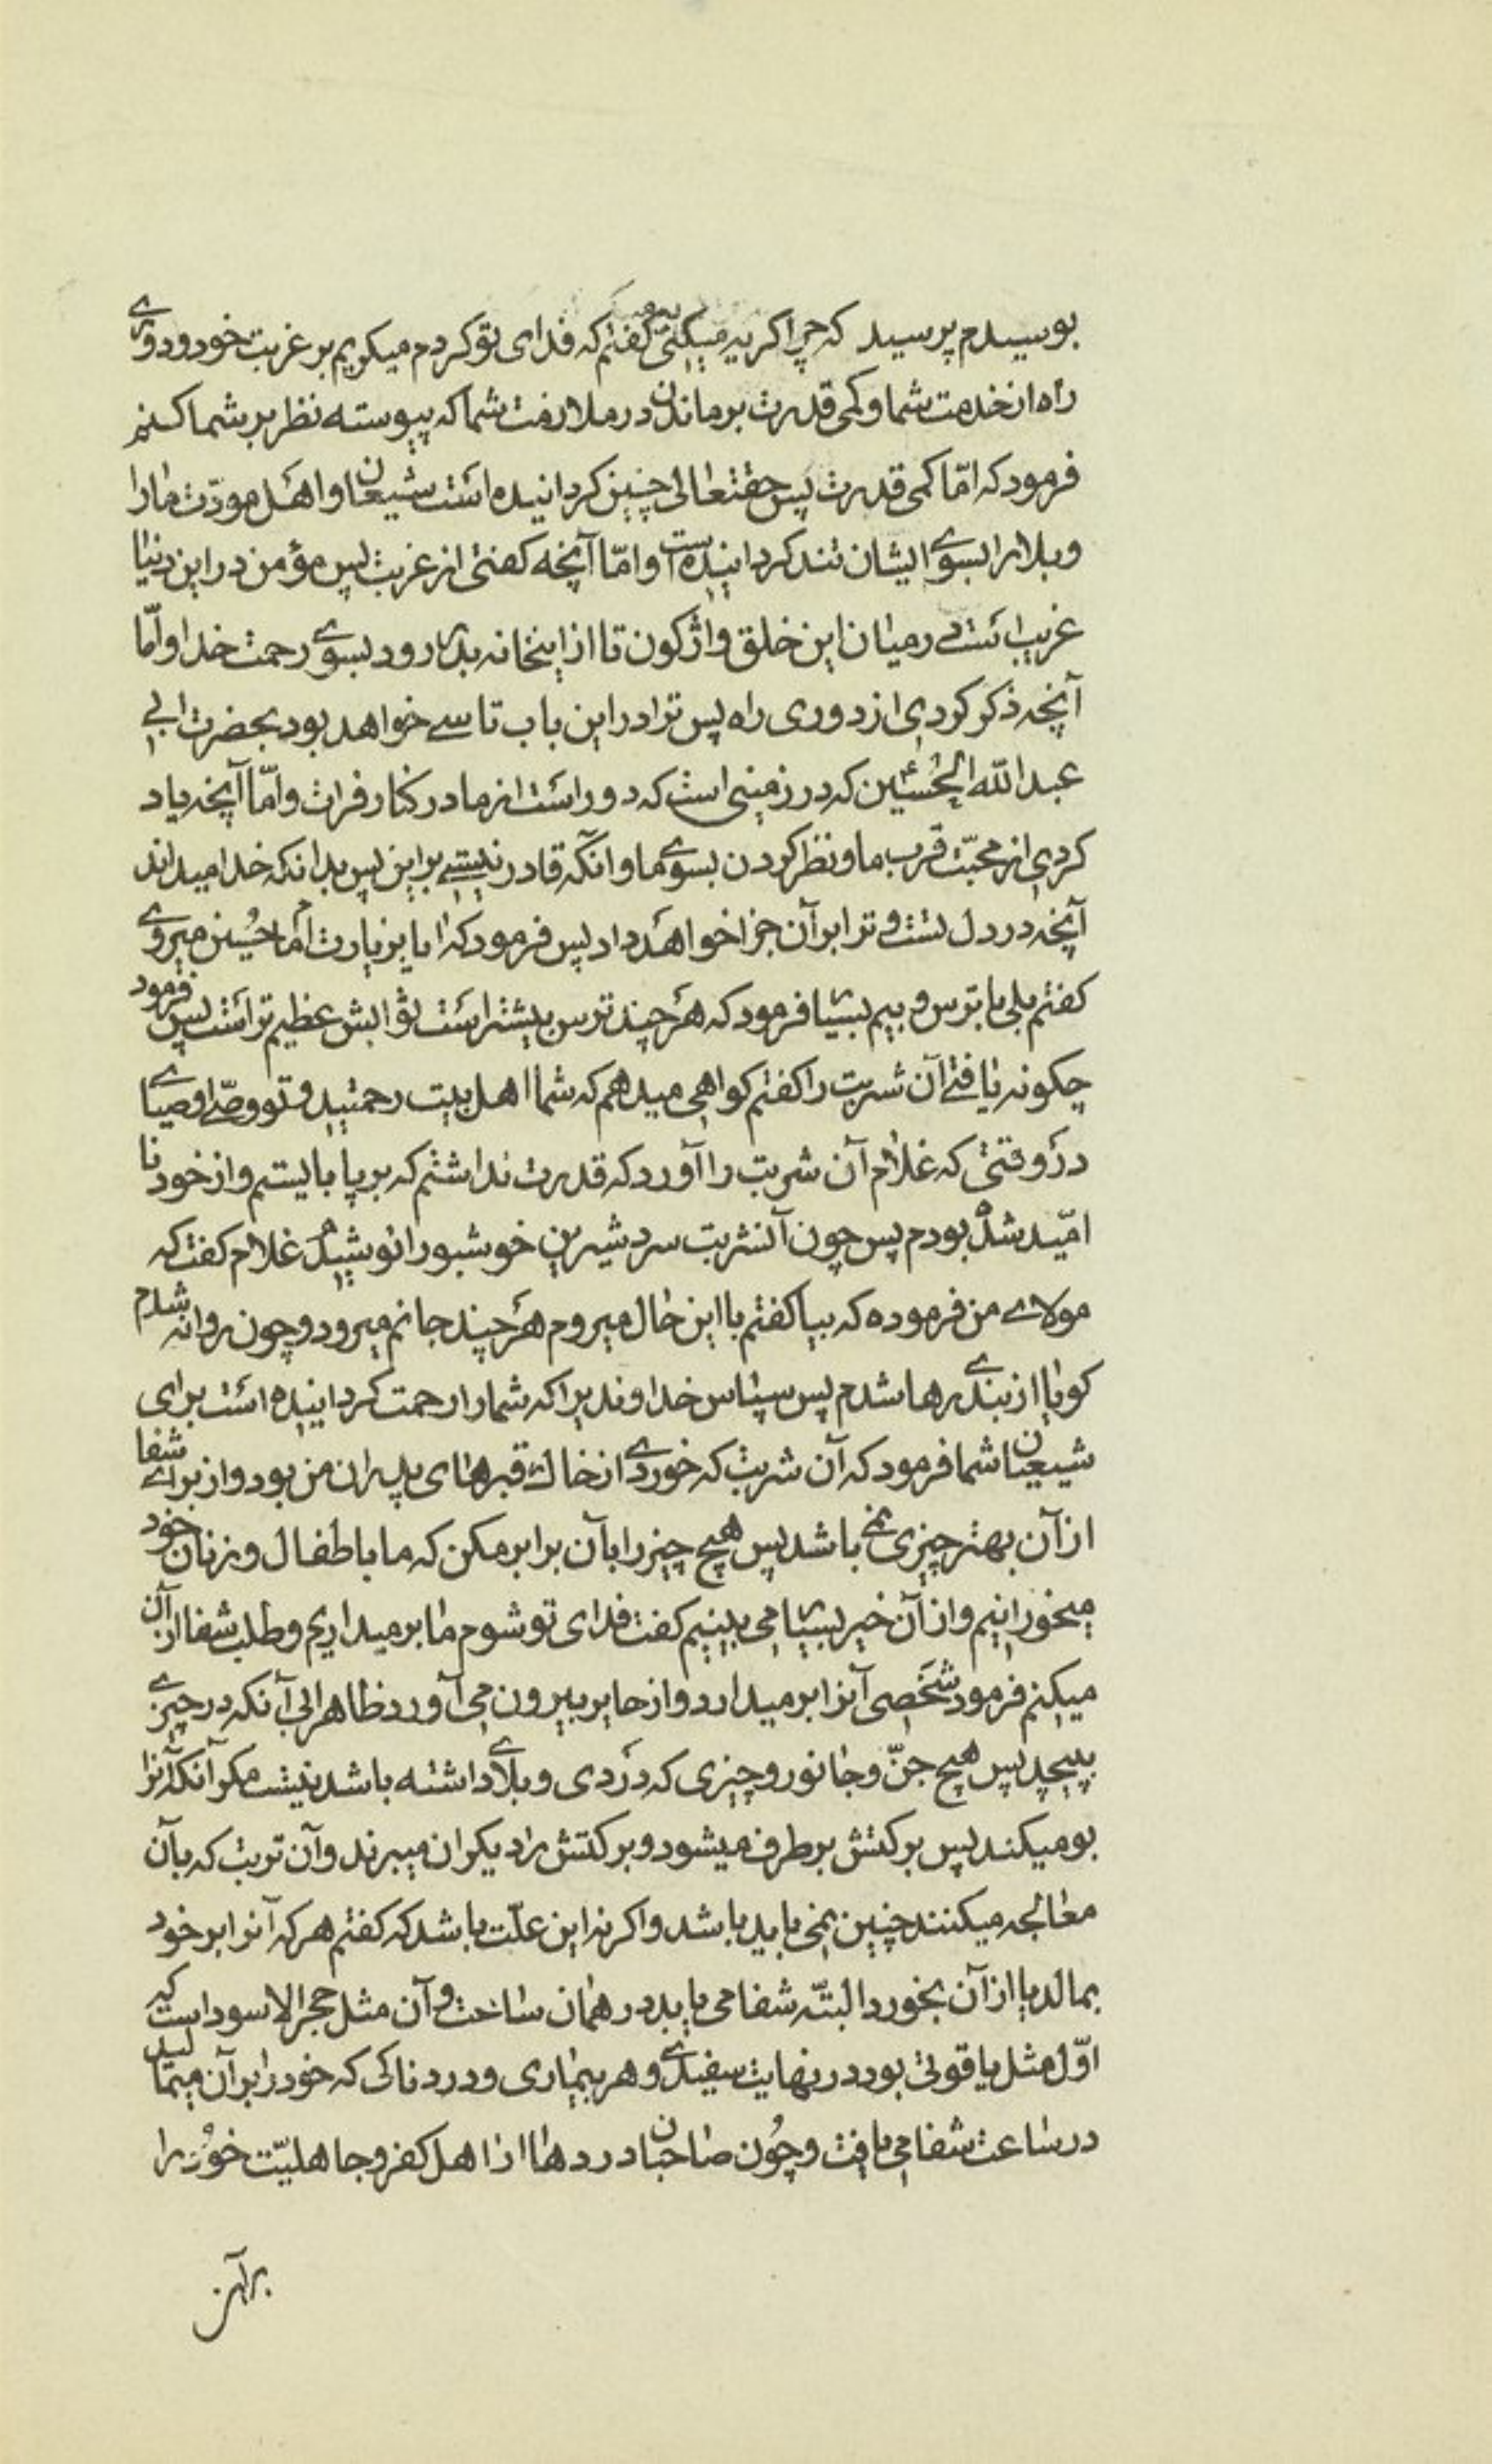 بوسیدم پرسید که چرا کریه میکنی کفتم که فدای تو کردم میکریم بر غربت خود و دوری
راه از خدمت شما و کمی قدرت بر ماندن در ملازمت شما که پیوسته نظر بر شما کنم
فرمود که امّا کمی قدرت پس حقتعالی چنین کردانیده است شیعیان ما و اهل مودّت ما را
و بلا را بسوی ایشان تند کردانیده است و امّا آنچه کفتی از غربت پس مؤمن در این دنیا
غریب است در میان این خلق واژکون تا از اینخانه بدر رود بسوی رحمت خدا و امّا
آنچه ذکر کردی از دوری راه پس ترا در این باب تاسی خواهد بود بحضرت ابی
عبد الله الحسین ع که در زمینی است که دور است از ما در کنار فرات و امّا آنچه یاد
کردی از محبّت قرب ما و نظر کردن بسوی ما و آنکه قادر نیستی بر این پس بدانکه خدا میداند
آنچه در دل تست و ترا بر آن جزا خواهد داد پس فرمود که ایا بزیارت امام حسین میروی
کفتم بلی با ترس و بیم بسیار فرمود که هر چند ترس بیشتر است ثوابش عظیم تر است پس فرمود
چکونه یافتی آن شربت را کفتم کواهی میدهم که شما اهل بیت رحمتید و تو وصّی اوصیائی
در وقتی که غلام آن شربت را آورد که قدرت نداشتم که بر پا بایستم و از خود نا
امّید شده بودم پس چون آنشربت سرد شیرین خوشبو را نوشیدم غلام کفت که
مولای من فرموده که بیا کفتم با این حال میروم هر چند جانم میرود و چون روانه شدم
کویا از بندی رها شدم پس سپاس خداوندیرا که شما را رحمت کردانیده است برای
شیعیان شما فرمود که آن شربت که خوردی از خاک قبرهای پدران من بود و از برای شفا
از آن بهتر چیزی نمی باشد پس هیچ چیز را بآن برابر مکن که ما باطفال و زنان خود
میخورانیم و از آن خیر بسیار می بینیم کفت فدای تو شوم ما بر میداریم و طلب شفا از آن
میکنم فرمود شخصی آنرا بر میدارد و از حایر بیرون می آورد ظاهر ابی آنکه در چیزی
بپیچد پس هیچ جنّ و جانور و چیزی که دردی و بلای داشته باشد نیست مکر آنکه آنرا
بو میکند پس برکتش بر طرف میشود و برکتش را دیکران میبرند و آن تربت که بآن
معالجه میکنند چنین نمی باید باشد و اکر نه این علّت باشد که کفتم هر که آنرا بر خود
بمالد یا از آن بخورد البتّه شفا می یابد در همان ساعت و آن مثل حجر الاسود است که
اوّل مثل یاقوتی بود در نهایت سفیدی و هر بیماری و دردناکی که خود را بر آن میمالید
در ساعت شفا می یافت و چون صاحبان دردها از اهل کفر و جاهلیّت خود را
بر آن